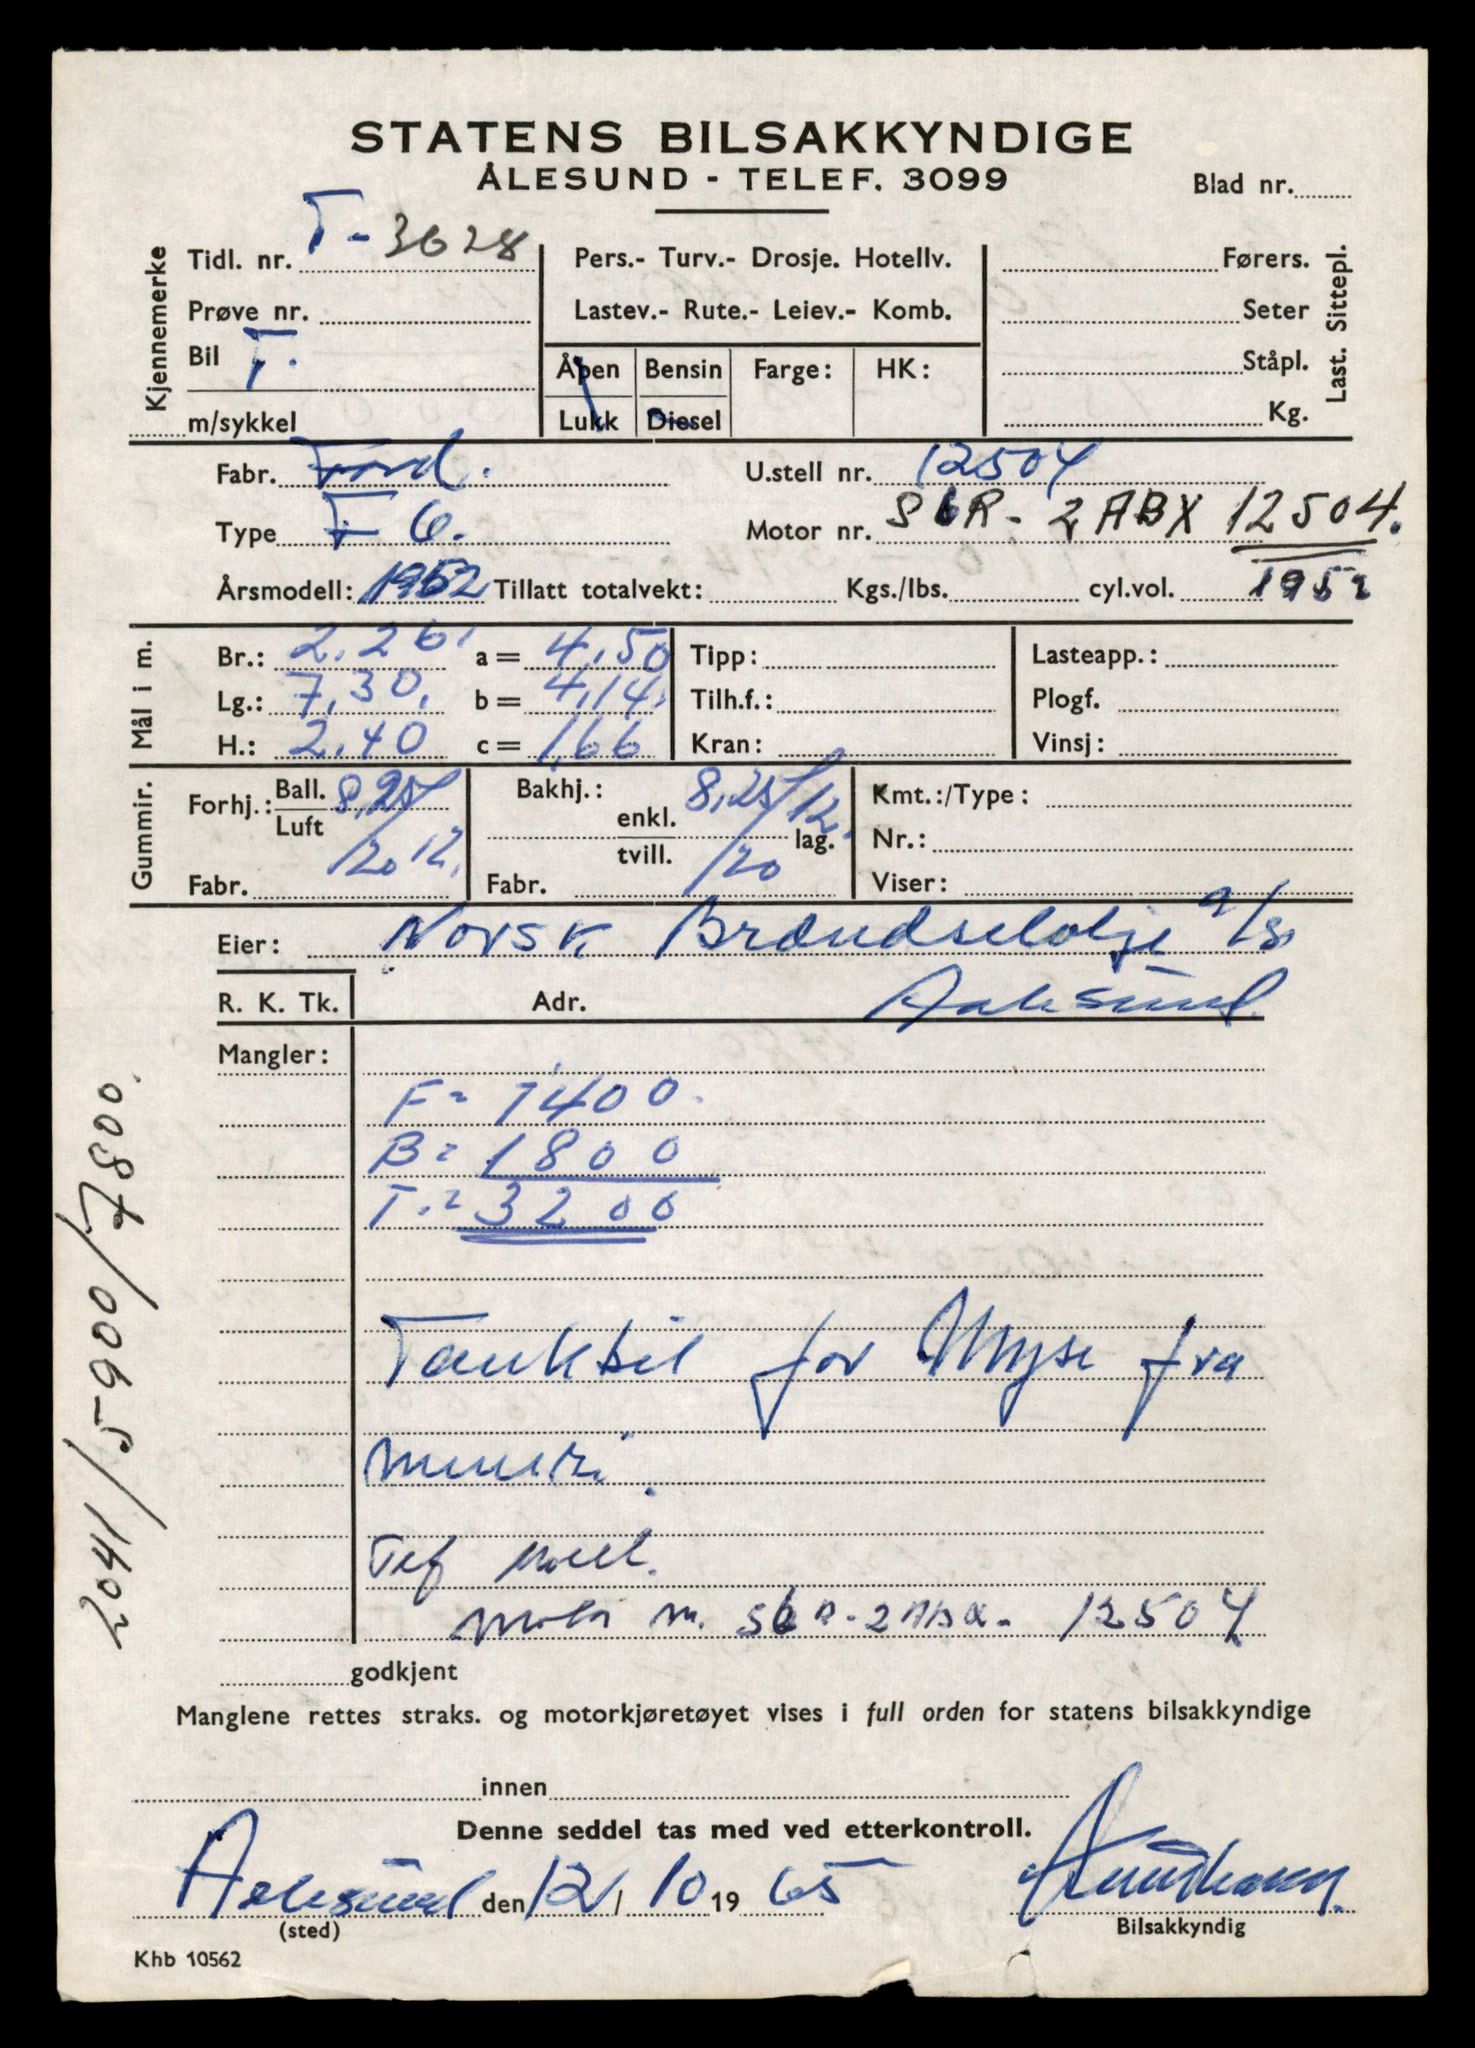 STATENS BILSAKKYNDIGE
ÅLESUND - TELEF. 3099
Blad nr.
Kjennemerke
Tidl. nr. T-3628
Prøve nr.
Bil T.
m/sykkel
Pers.- Turv.- Drosje. Hotellv.
Lastev.- Rute.- Leiev.- Komb.
Åpen
Lukk
Bensin
Diesel
Farge:
HK:
Førers.
Seter
Ståpl.
Kg.
Last. Sittepl.
Fabr. Ford.
U.stell nr. 12504
Type F 6.
Motor nr. S6R- 2ABX 12504.
Årsmodell: 1952 Tillatt totalvekt: Kgs./lbs. cyl.vol. 1952
Mål i m.
Br.: 2.26. a = 4,50
Lg.: 7,30. b = 4,14.
H.: 2,40 c = 1,66
Tipp:
Tilh.f.:
Kran:
Lasteapp.:
Plogf.
Vinsj:
Gummir.
Forhj.: Ball. 8,25/
Luft
/20 12.
Fabr.
Bakhj.:
enkl. 8,25/12.
tvill. /20 lag.
Fabr.
Kmt.:/Type:
Nr.:
Viser:
Eier: Norsk Brændselolje a/s.
R. K. Tk. Adr. Aalesund.
Mangler:
F = 1400.
B = 1800
T. = 3200
Tankbil for Myse fra
Tef
S6R-2ABX- 12504
2041/5900/7800.
godkjent
Manglene rettes straks. og motorkjøretøyet vises i full orden for statens bilsakkyndige
innen
Denne seddel tas med ved etterkontroll.
Aalesund den 12/10 19 65
(sted)
Bilsakkyndig
Khb 10562